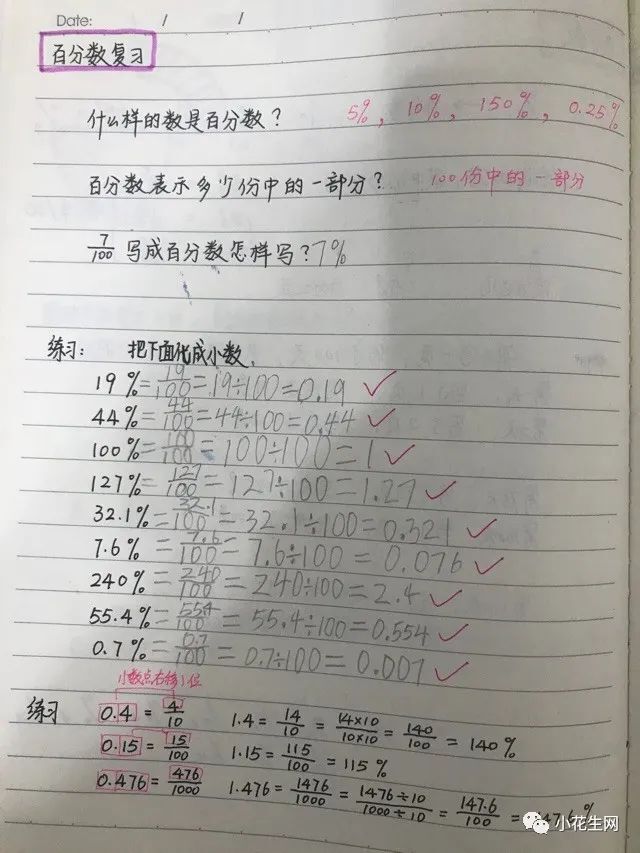 Date: / /
百分数复习
什么样的数是百分数? 5%, 10%, 150%, 0.25%
百分数表示多少份中的一部分? 100份中的一部分
7/100 写成百分数怎样写? 7%
练习: 把下面化成小数.
19%=19/100=19÷100=0.19 ✓
44%=44/100=44÷100=0.44 ✓
100%=100/100=100÷100=1 ✓
127%=127/100=127÷100=1.27 ✓
32.1%=32.1/100=32.1÷100=0.321 ✓
7.6%=7.6/100=7.6÷100=0.076 ✓
240%=240/100=240÷100=2.4 ✓
55.4%=554/100=55.4÷100=0.554 ✓
0.7%=0.7/100=0.7÷100=0.007 ✓
小数点右移1位
练习 0.4=4/10 1.4=14/10=14×10/10×10=140/100=140%
0.15=15/100 1.15=115/100=115%
0.476=476/1000 1.476=1476/1000=1476÷10/1000÷10=147.6/100=147.6%
小花生网